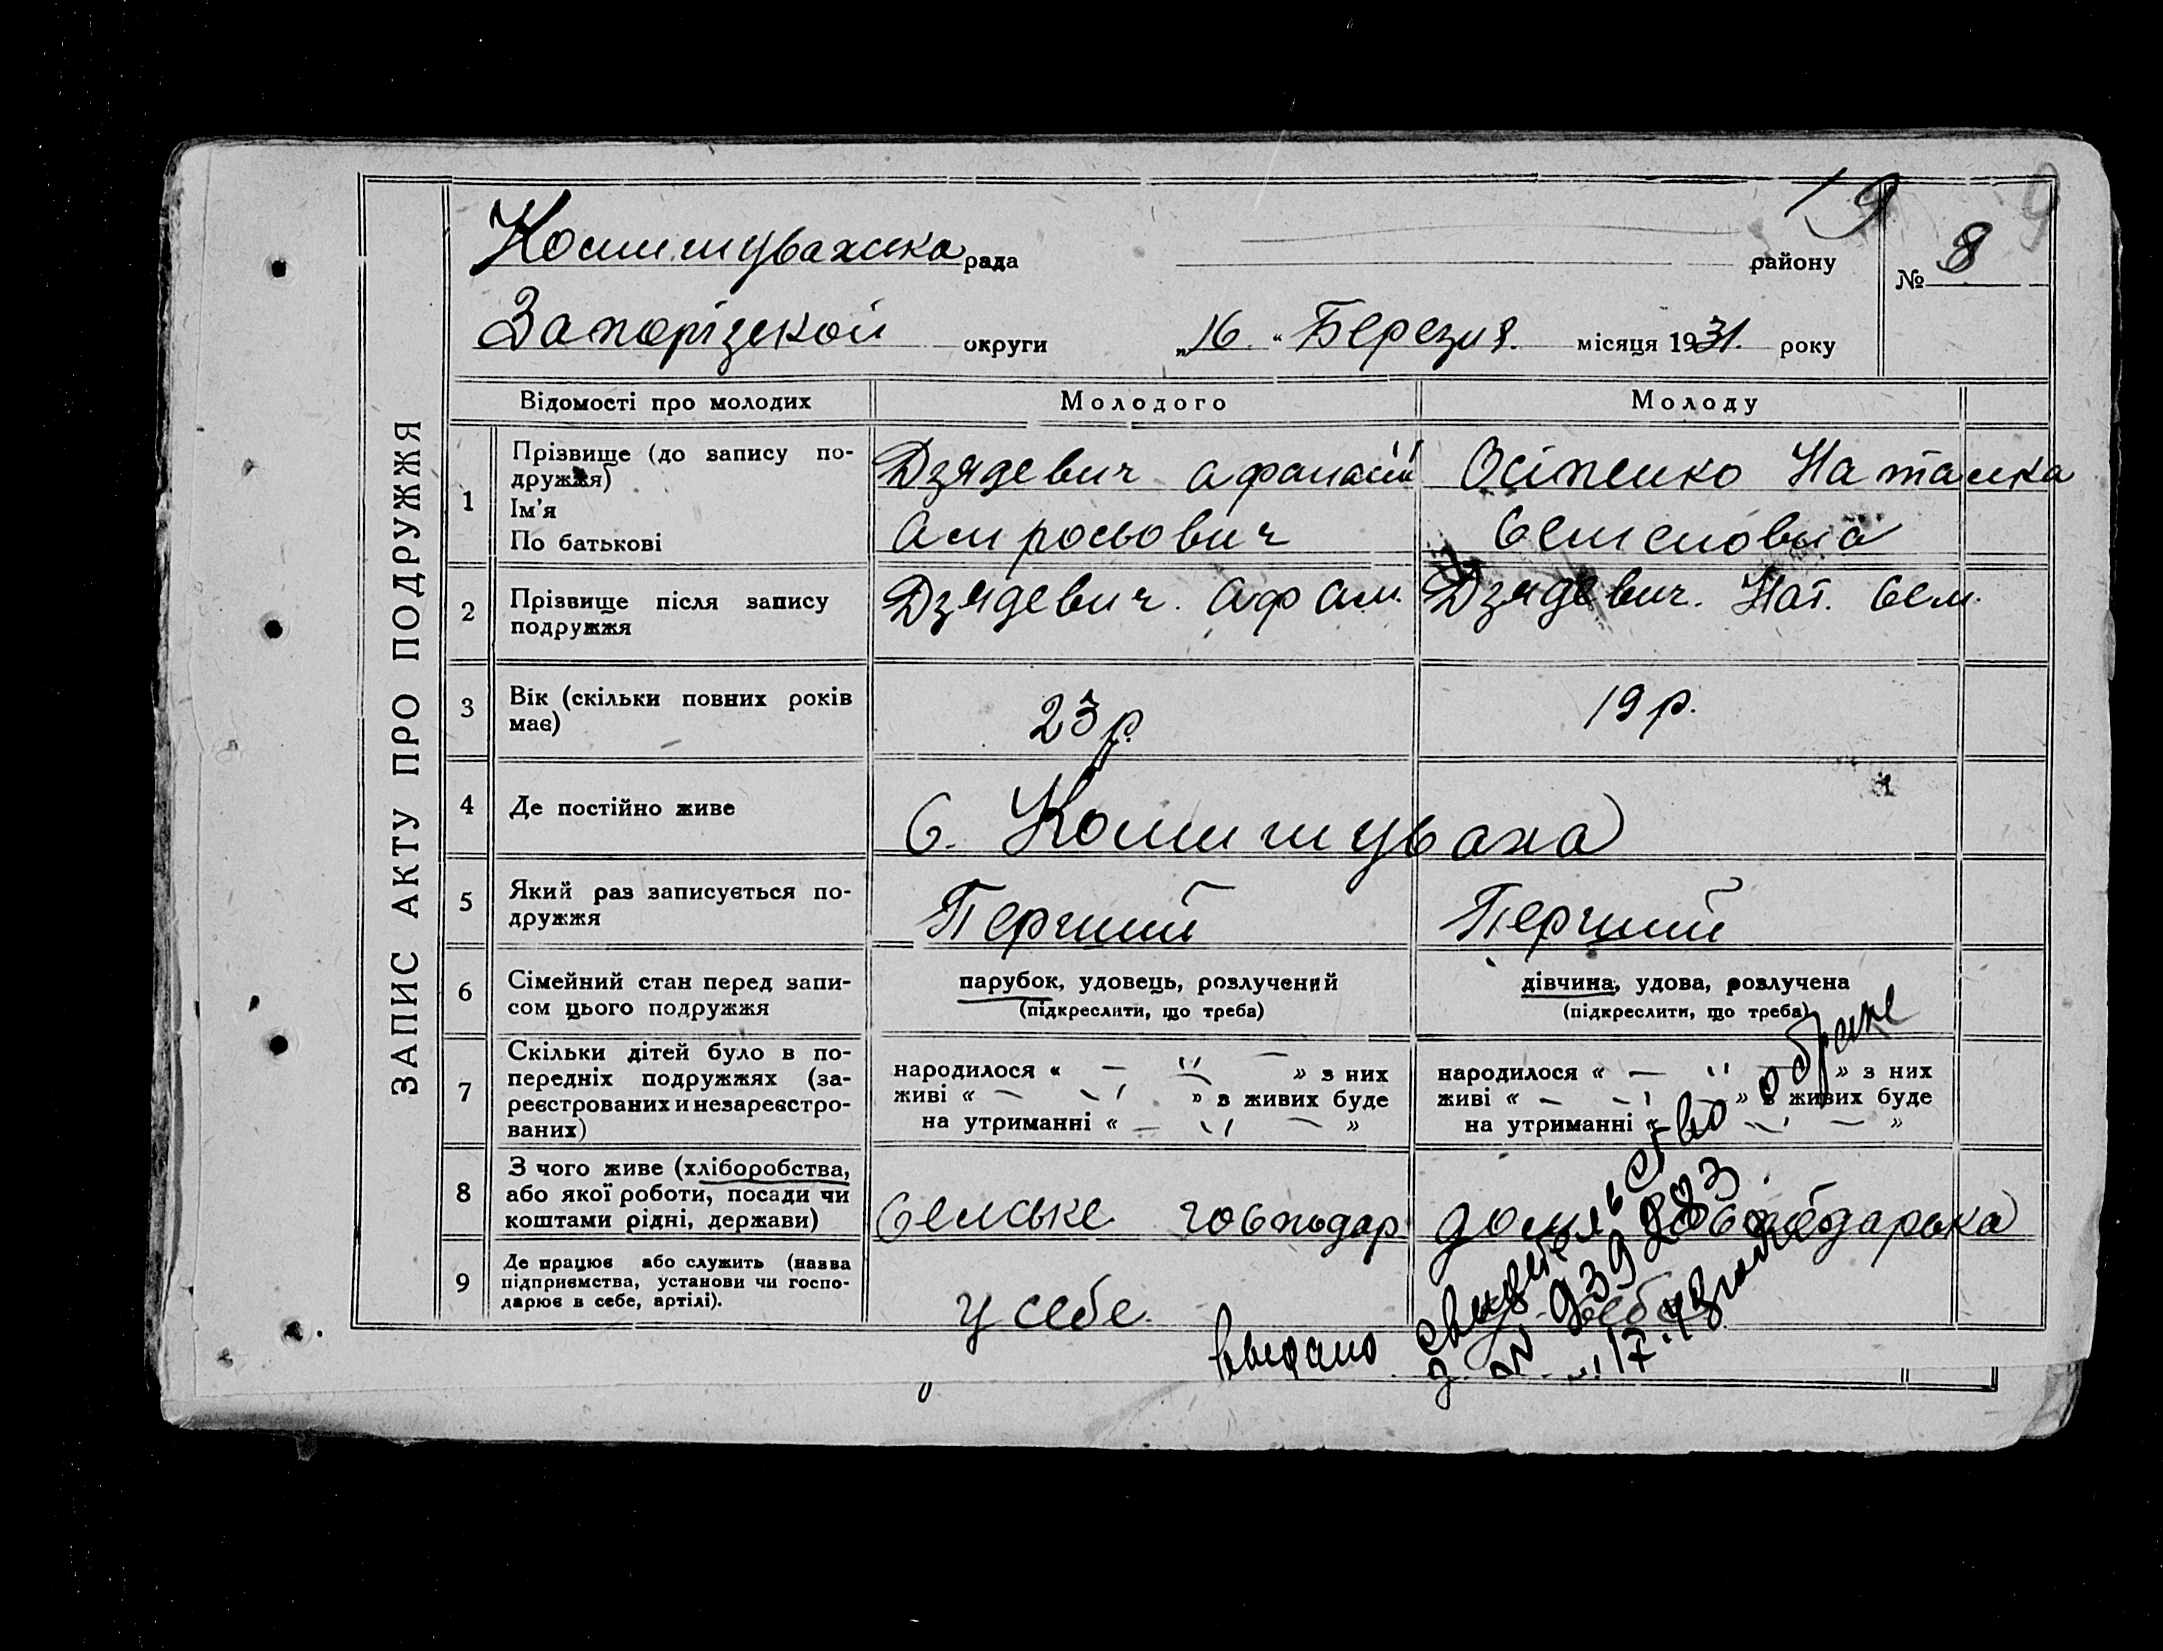 ЗАПИС АКТУ ПРО ПОДРУЖЖЯ
19 9
Комишувахска рада району № 8
Запорізской округи „16“ Березня місяця 1931 року
Відомості про молодих Молодого Молоду
1 Прізвище (до запису по-
дружжя)
Ім'я
По батькові
Дзядевич Афанасій
Амросьович
Осіпенко Наталка
Семеновна
2 Прізвище після запису
подружжя
Дзядевич. Афан.
Дзядевич. Нат. Сем.
3 Вік (скільки повних років
має)
23 р.
19 р.
4 Де постійно живе
С. Комишуваха
5 Який раз записується по-
дружжя
Перший
Перший
6 Сімейний стан перед запи-
сом цього подружжя
парубок, удовець, розлучений
(підкреслити, що треба)
дівчина, удова, розлучена
(підкреслити, що треба)
7 Скільки дітей було в по-
передніх подружжях (за-
реєстрованих и незареєстро-
ваних)
народилося « — " — » з них
живі « — " » з живих буде
на утриманні « — " — »
народилося « — " — » з них
живі « — " » з живих буде
на утриманні « — " — »
8 З чого живе (хліборобства,
або якої роботи, посади чи
коштами рідні, держави)
Селське господар
домя господарька
9 Де працює або служить (назва
підприємства, установи чи госпо-
дарює в себе, артілі).
у себе.
у себе
выдано свидетельство о браке
№ 939883